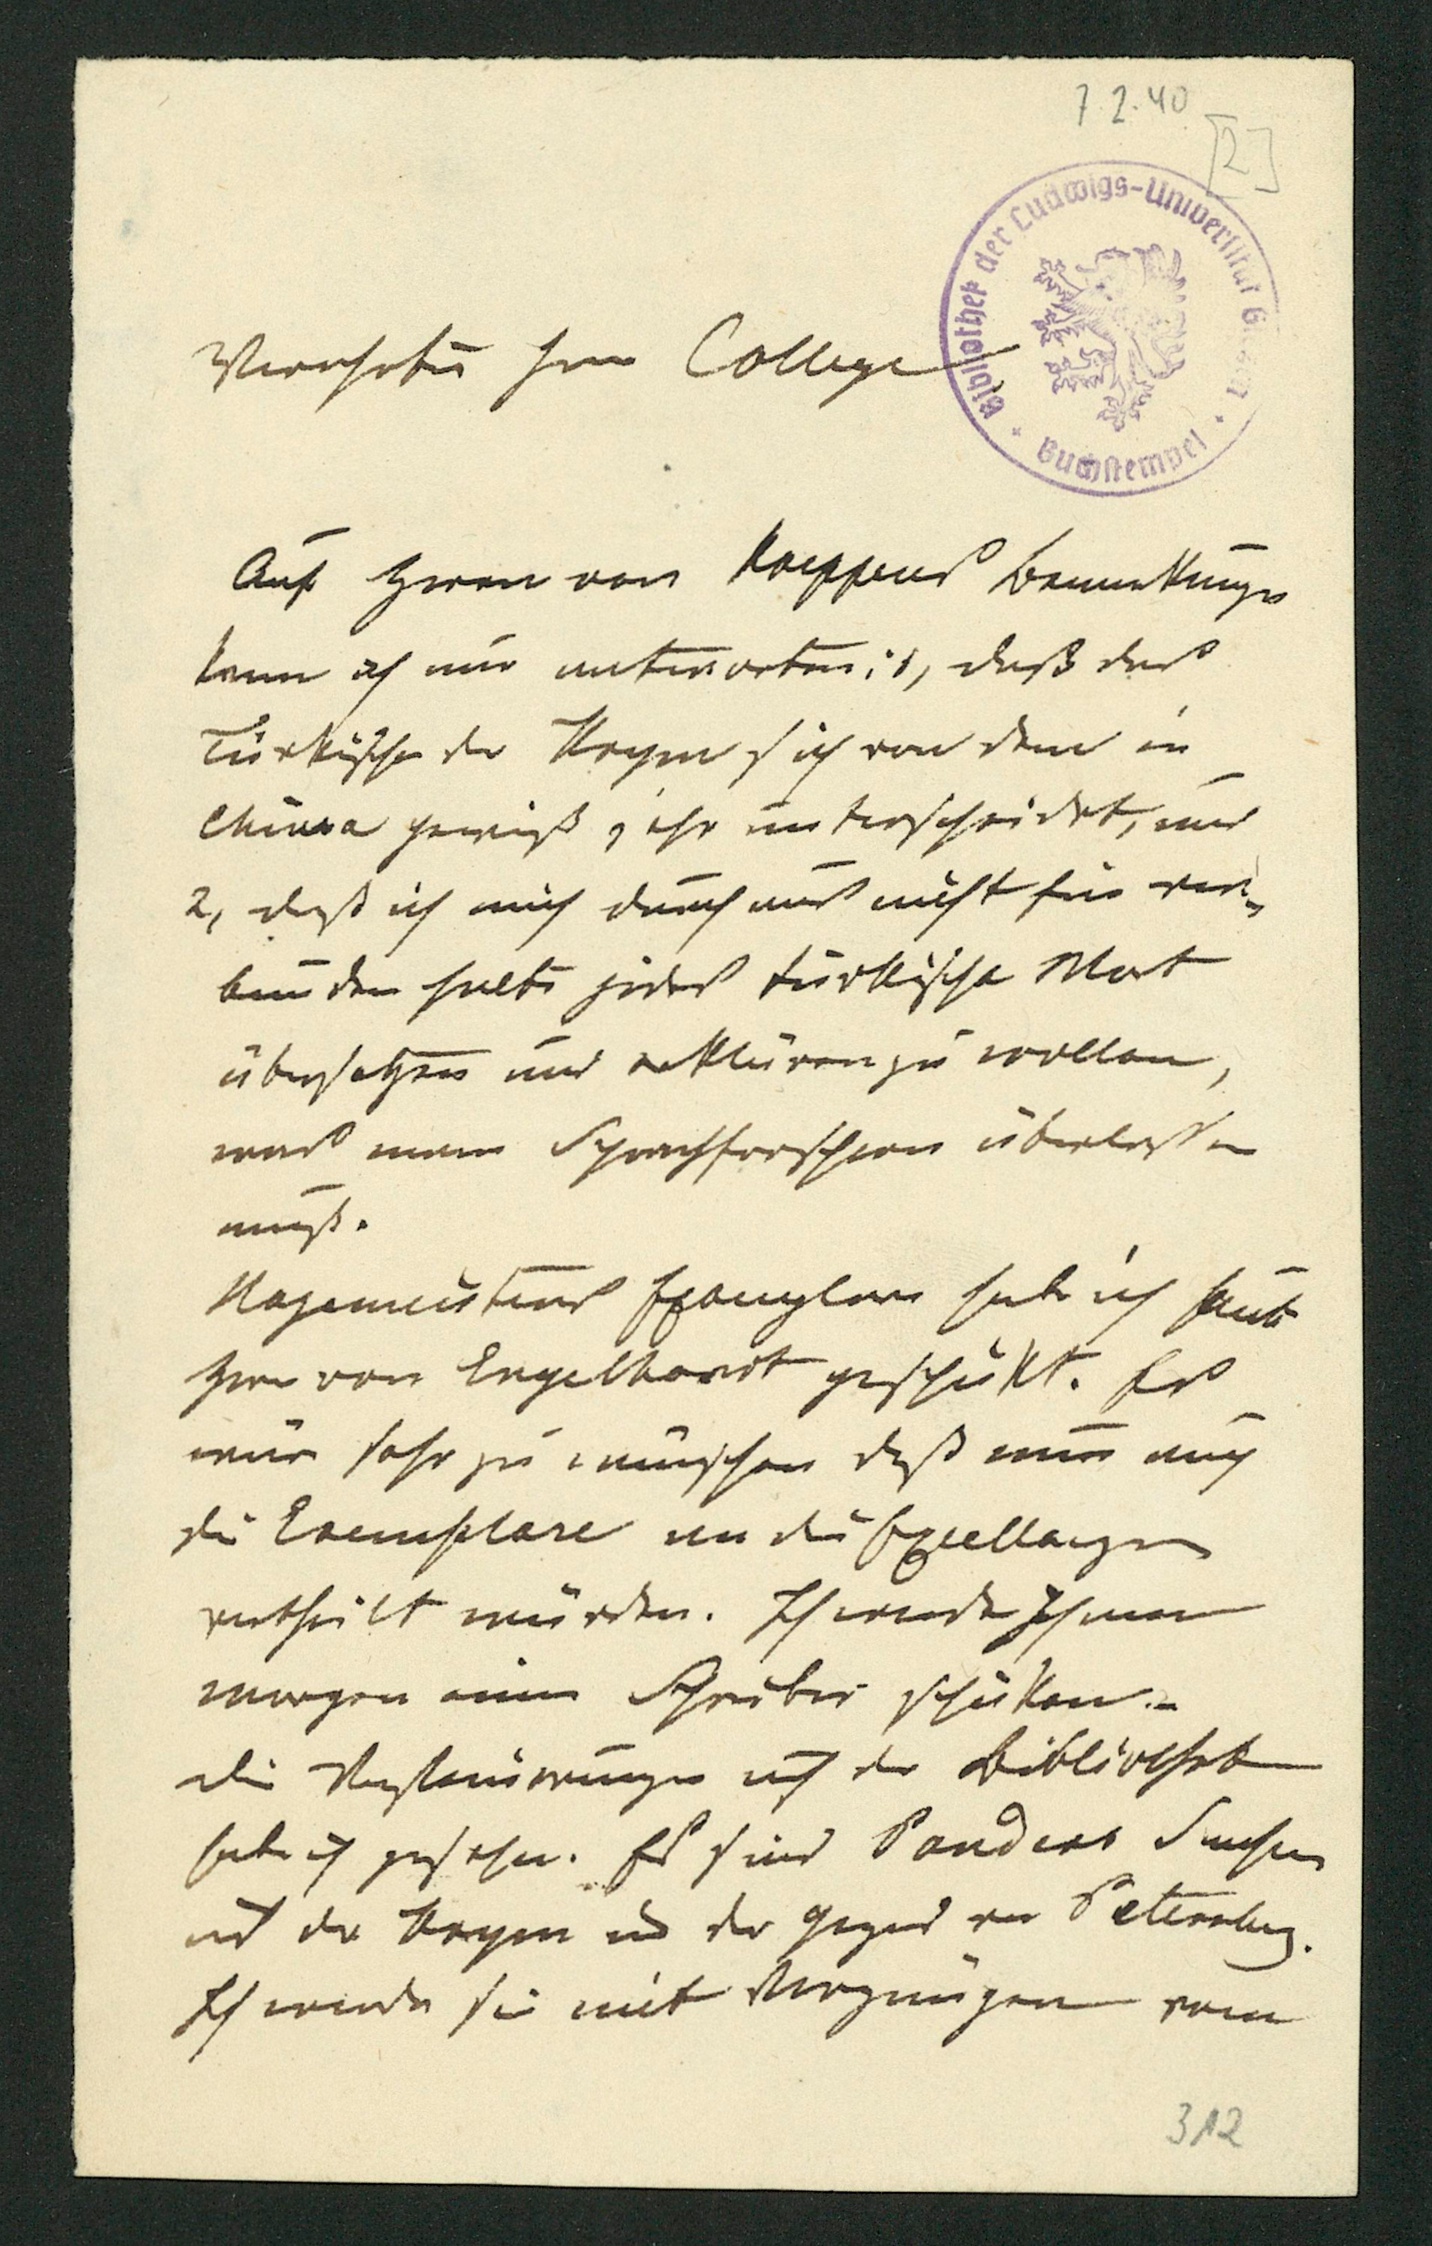 7.2.40
[2]
Bibliothek der Ludwigs-Universität Giessen
Buchstempel
Verehrter Herr College
Auf Herrn von Koeppens Bemerkungen
kann ich nur antworten: 1, daß das
Türkische der Krym sich von dem in
China gewiß sehr unterscheidet, und
2, daß ich mich durchaus nicht für ver-
bunden halte jedes türkische Wort
übersetzen und erklären zu wollen,
was man Sprachforschern überlassen
muß.
Hagemeisters Exemplare habe ich heute
Herrn von Engelhardt geschickt. Es
wäre sehr zu wünschen daß nun auch
die Exemplare an die Excellenzen
vertheilt würden. Ich werde Ihnen
morgen einen Schreiber schicken.-
Die Versteinerungen auf der Bibliothek
habe ich gesehen. Es sind Panders Sachen
aus der Krym und der Gegend von Petersburg.
Ich werde sie mit Vergnügen vom
312